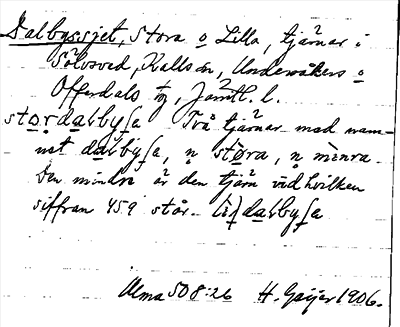 Dalbyssjet, Stora o Lilla, tjärnar i
Sölvsved, Kallsön, Undersåkers o
Offerdals tg, Jämtl. l.
stordalbyſa Två tjärnar med nam-
net dalbyſa, n støra, n minra.
Den mindre är den tjärn vid hvilken
siffran 459 står. liʃdalbyſa
Alma 508:26 H. Geijer 1906.